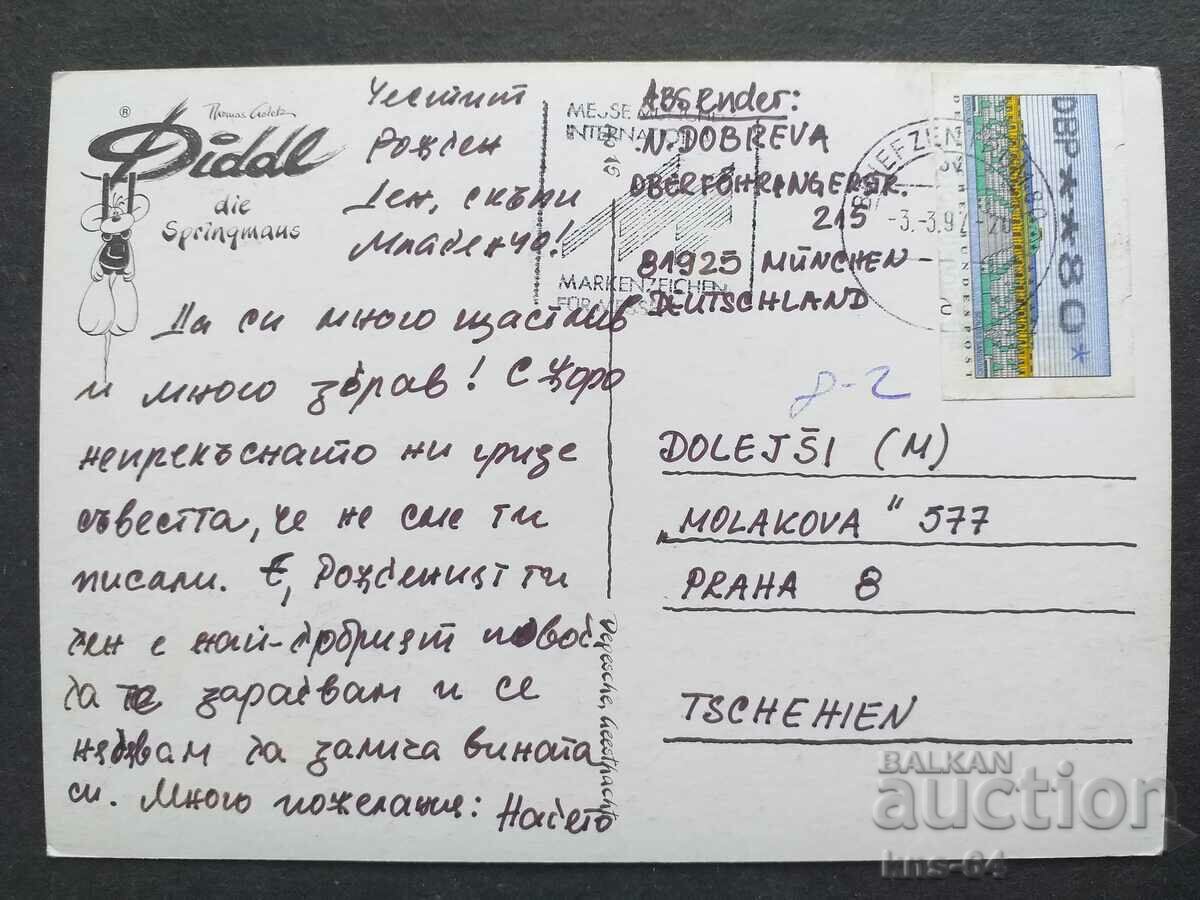 ®
Thomas Goletz
Diddl
die
Springmaus
Честит
Рожден
Ден, скъпи
Младенчо!
Да си много щастлив
и много здрав! С Жоро
непрекъснато ни гризе
съвестта, че не сме ти
писали. Е, Рожденият ти
ден е най-добрият повод
да те зарадвам и се
надявам да залича вината
си. Много пожелания: Надето
MESSE
INTERNATIONAL
MARKENZEICHEN
Absender:
N. DOBREVA
OBERFÖHRINGERSTR.
215
81925 MÜNCHEN
DEUTSCHLAND
BRIEFZENTRUM
-3.-3.97-20
DBP***80*
DEUTSCHE BUNDESPOST
8-2
DOLEJŠI (M)
„MOLAKOVA" 577
PRAHA 8
TSCHEHIEN
Depesche, Geesthacht
BALKAN
auction
kns-64